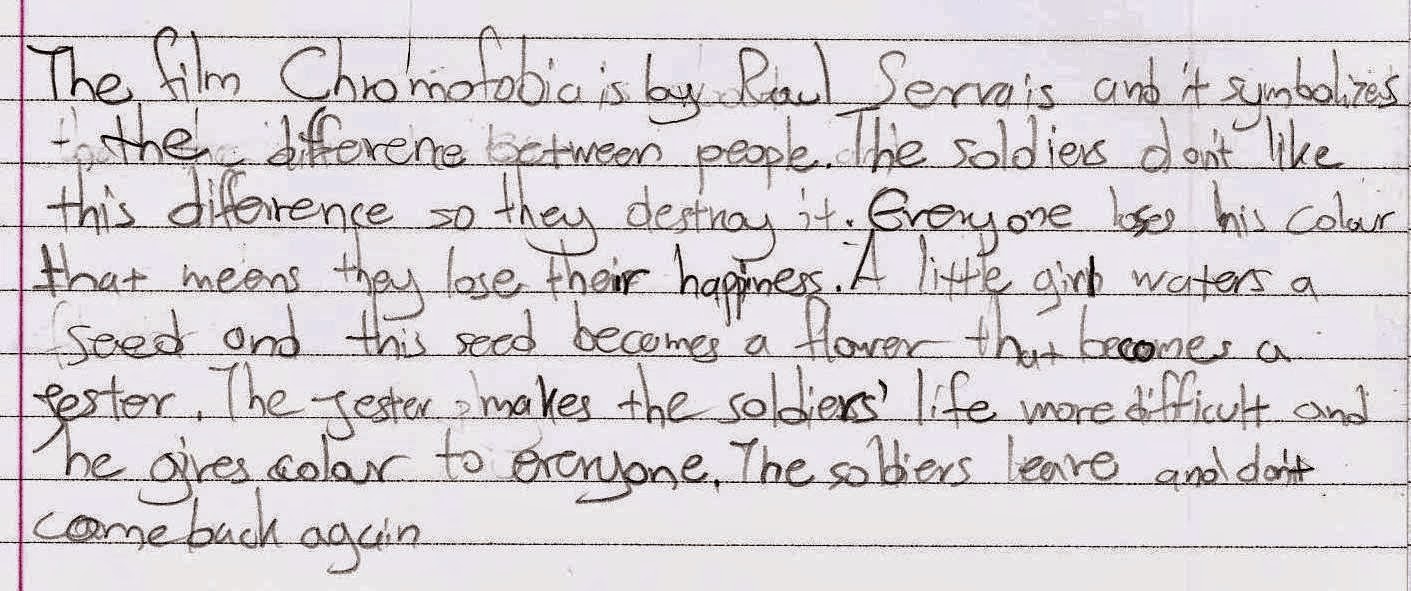 The film Chromofobia is by Raul Servais and it symbolizes
the difference between people. The soldiers don't like
this difference so they destroy it. Everyone loses his colour
that means they lose their happiness. A little girl waters a
seed and this seed becomes a flower that becomes a
jester. The jester makes the soldiers' life more difficult and
he gives colour to everyone. The soldiers leave and don't
come back again